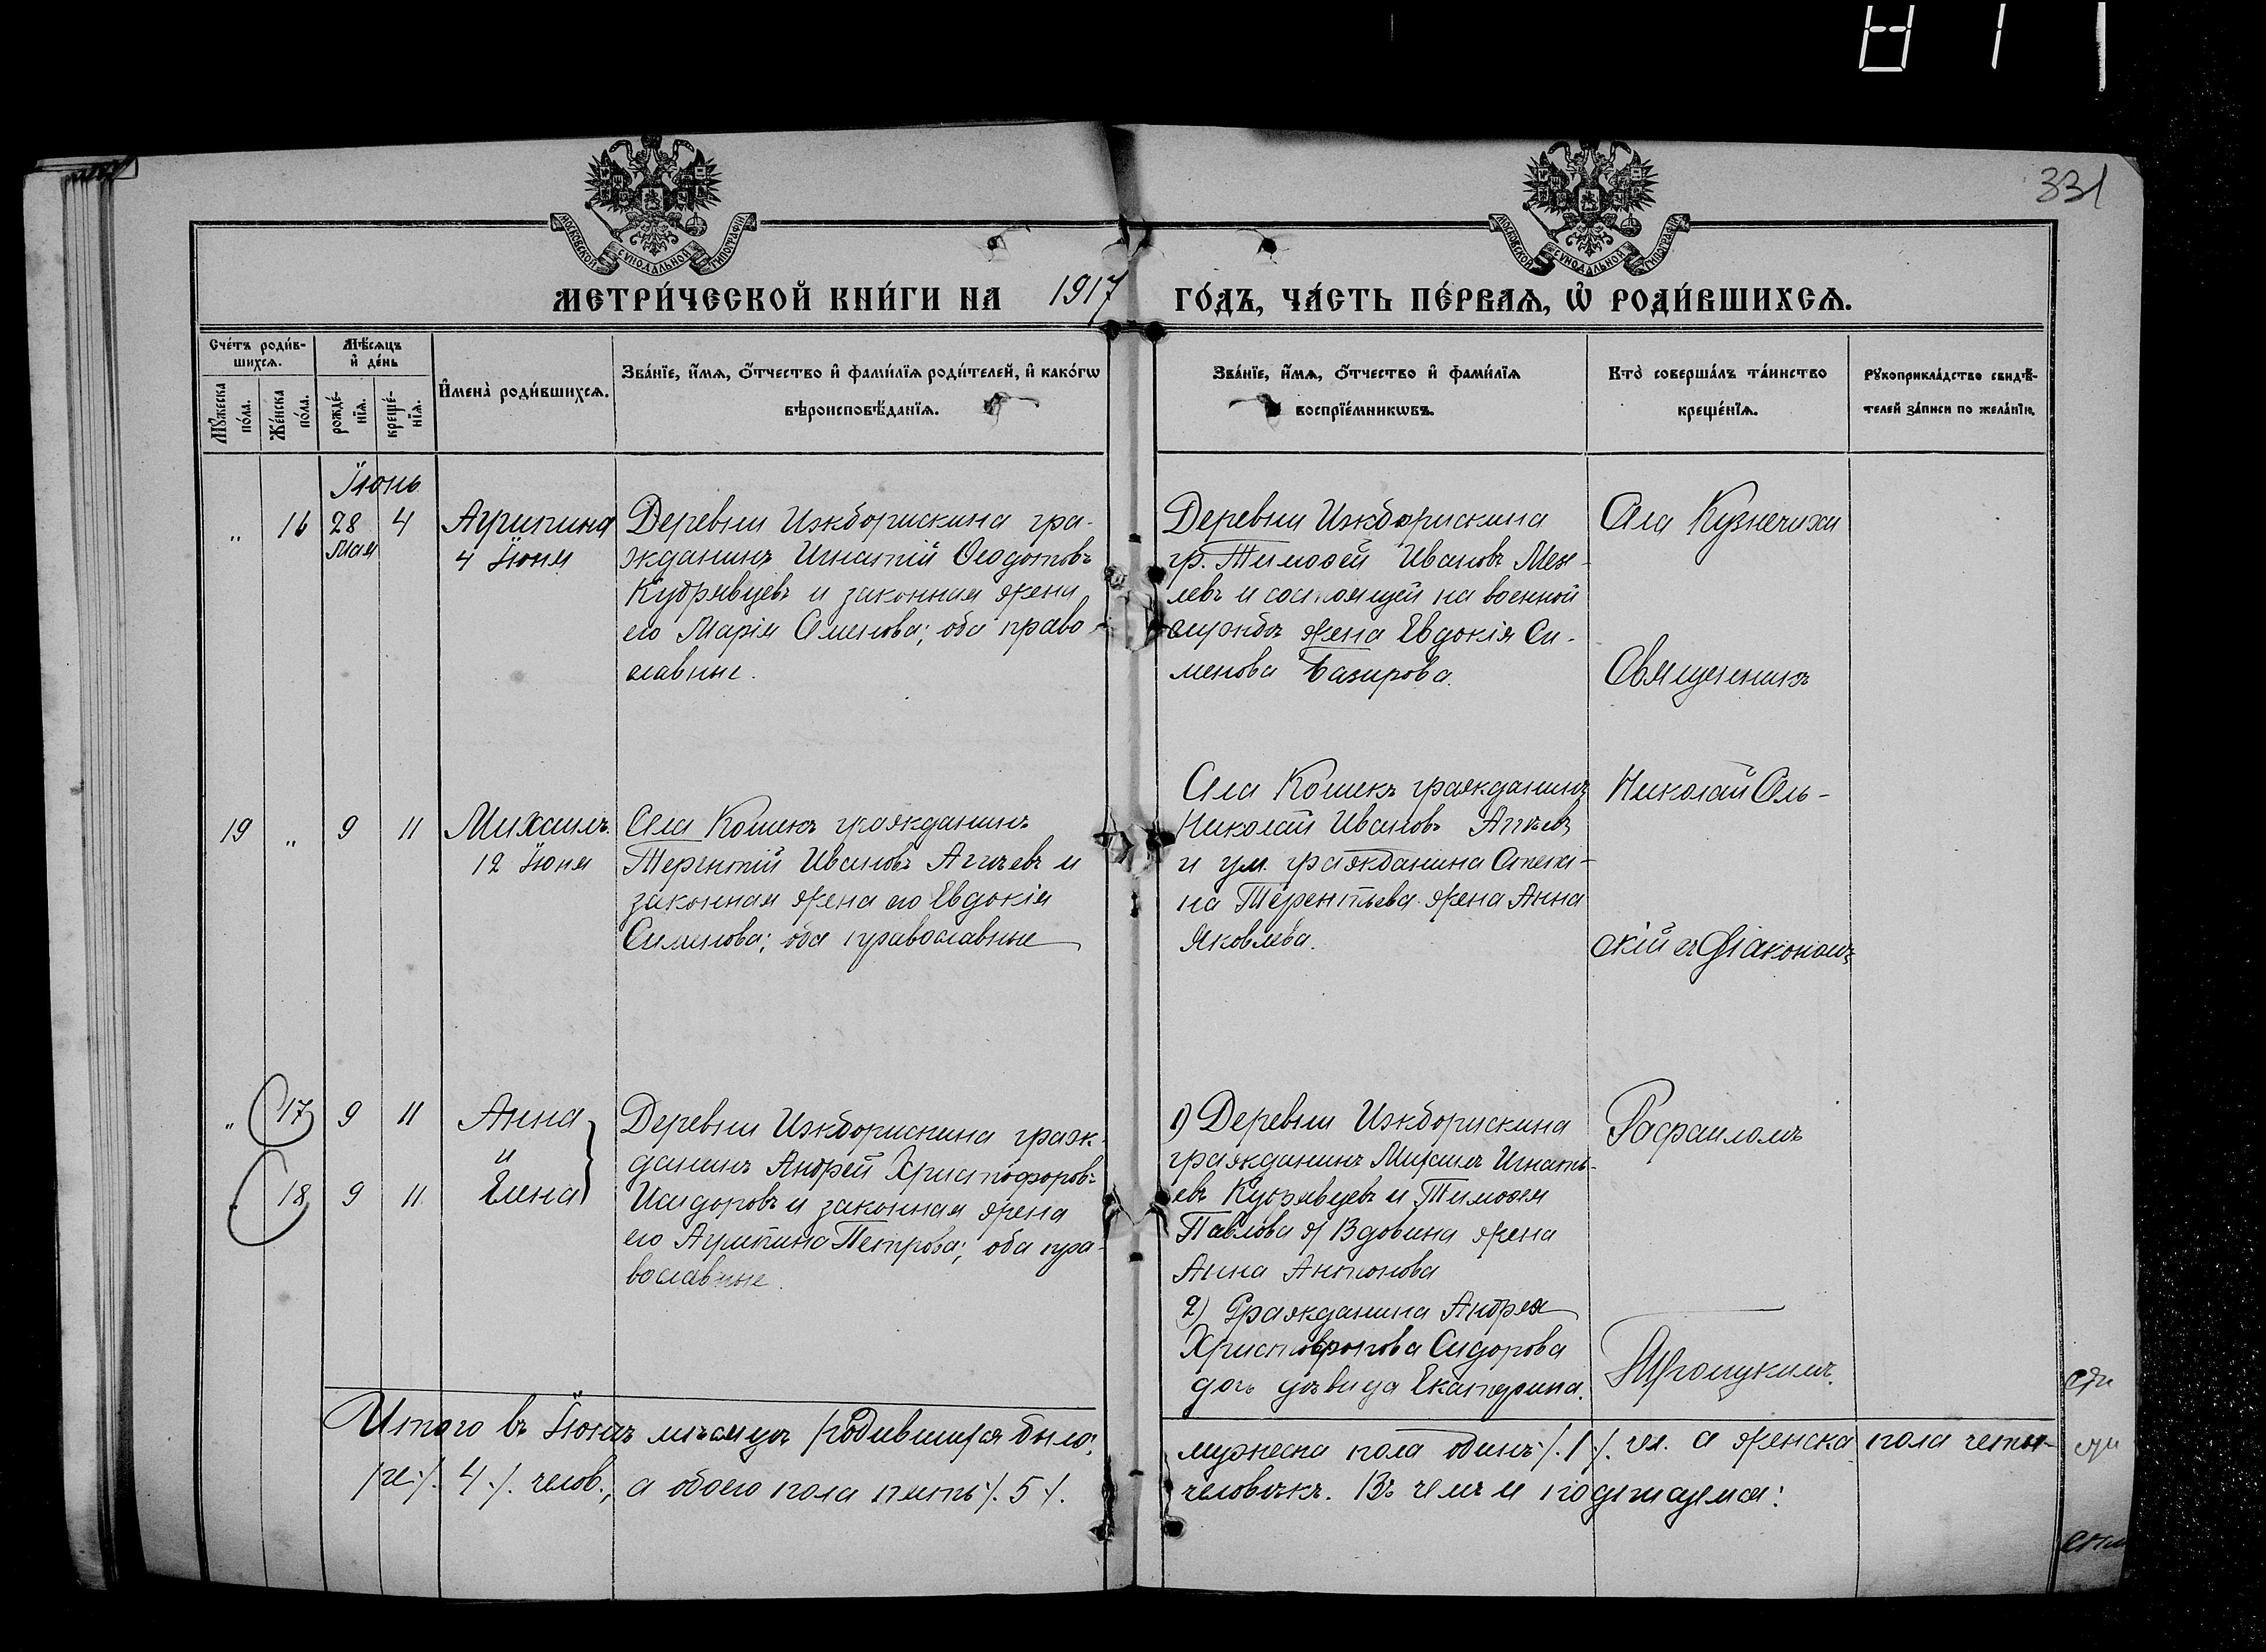 331
МОСКОВСКОЙ СѴНОДАЛЬНОЙ ТИПОГРАФІИ
МОСКОВСКОЙ СѴНОДАЛЬНОЙ ТИПОГРАФІИ
МЕТРИ́ЧЕСКОЙ КНИ́ГИ НА 1917 ГО́ДЪ, ЧА́СТЬ ПЕ́РВАѦ, Ѡ҆ РОДИ́ВШИХСѦ.
Сче́тъ роди́в-
шихсѧ.
Мꙋ́жеска по́ла.
Же́нска по́ла.
Мѣ́сѧцъ
и҆ де́нь
рожде́-
нїѧ.
креще́-
нїѧ.
И҆мена̀ роди́вшихсѧ.
Зва́нїе, и҆́мѧ, ѻ҆́тчество и҆ фами́лїѧ роди́телей, и҆ како́гѡ
вѣроисповѣ́данїѧ.
Зва́нїе, и҆́мѧ, ѻ҆́тчество и҆ фами́лїѧ
воспрїе́мникѡвъ.
Кто̀ соверша́лъ та́инство
креще́нїѧ.
Рꙋкоприкла́дство свидѣ́-
телей за́писи по жела́нїю.
Іюнь
" 16 28 4 Агрипина
Мая 4 Іюня
Деревни Ижборискина гра-
жданинъ Игнатій Ѳеодотовъ
Кудрявцевъ и законная жена
его Марія Семенова; оба право
славные.
Деревни Ижборискина
гр. Тимоѳей Ивановъ
левъ и состоящей на военной
службѣ жена Евдокія Си-
менова
Села Кузнечихи
Священникъ
19 " 9 11 Михаилъ.
12 Іюня
Села Кошекъ гражданинъ
Терентій Ивановъ Агишевъ и
законная жена его Евдокія
Симеонова; оба православные
Села Кошекъ гражданинъ
Николай Ивановъ
и ум. гражданина Степа-
на Терентьева жена Анна
Яковлева.
Николай Оль-
скій съ Діакономъ
" 17 9 11 Анна
и
" 18 9 11 Елена
Деревни Ижборискина граж-
данинъ Андрей Христофоровъ
Исидоровъ и законная жена
его Агрипина Петрова; оба пра-
вославные.
1) Деревни Ижборискина
гражданинъ Михаилъ Игнать-
евъ Кудрявцевъ и Тимоѳея
Павлова Вдовина жена
Анна Антонова
2) Гражданина Андрея
Христофорова Сидорова
дочь дѣвица Екатерина.
Рафаиломъ
Троицкимъ.
Итого въ Іюнѣ мѣсяцѣ родившихся было: мужеска пола одинъ ·/. 1 ·/. чел. а женска пола четы-
ре ·/. 4 ·/. челов., а обоего пола пять ·/. 5 ·/. человѣкъ. Въ чемъ и